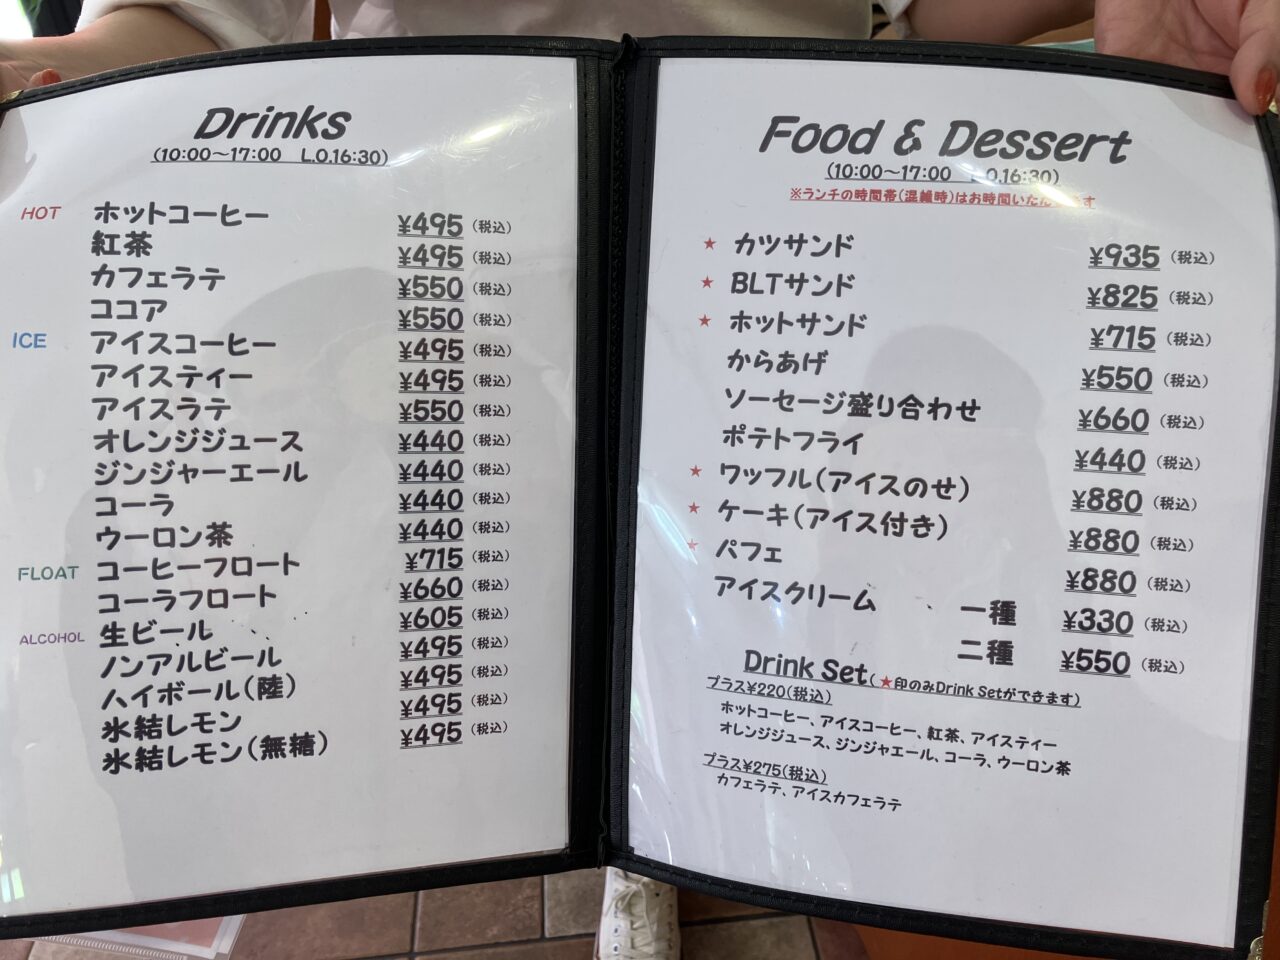 Drinks
(10:00～17:00 L.O.16:30)
HOT ホットコーヒー ¥495（税込）
紅茶 ¥495（税込）
カフェラテ ¥550（税込）
ココア ¥550（税込）
ICE アイスコーヒー ¥495（税込）
アイスティー ¥495（税込）
アイスラテ ¥550（税込）
オレンジジュース ¥440（税込）
ジンジャーエール ¥440（税込）
コーラ ¥440（税込）
ウーロン茶 ¥440（税込）
FLOAT コーヒーフロート ¥715（税込）
コーラフロート ¥660（税込）
ALCOHOL 生ビール ¥605（税込）
ノンアルビール ¥495（税込）
ハイボール（陸） ¥495（税込）
氷結レモン ¥495（税込）
氷結レモン（無糖） ¥495（税込）
Food & Dessert
(10:00～17:00 L.O.16:30)
※ランチの時間帯（混雑時）はお時間いただ
★ カツサンド ¥935（税込）
★ BLTサンド ¥825（税込）
★ ホットサンド ¥715（税込）
からあげ ¥550（税込）
ソーセージ盛り合わせ ¥660（税込）
ポテトフライ ¥440（税込）
★ ワッフル（アイスのせ） ¥880（税込）
★ ケーキ（アイス付き） ¥880（税込）
★ パフェ ¥880（税込）
アイスクリーム 一種 ¥330（税込）
二種 ¥550（税込）
Drink Set（★印のみDrink Setができます）
プラス¥220（税込）
ホットコーヒー、アイスコーヒー、紅茶、アイスティー
オレンジジュース、ジンジャエール、コーラ、ウーロン茶
プラス¥275（税込）
カフェラテ、アイスカフェラテ